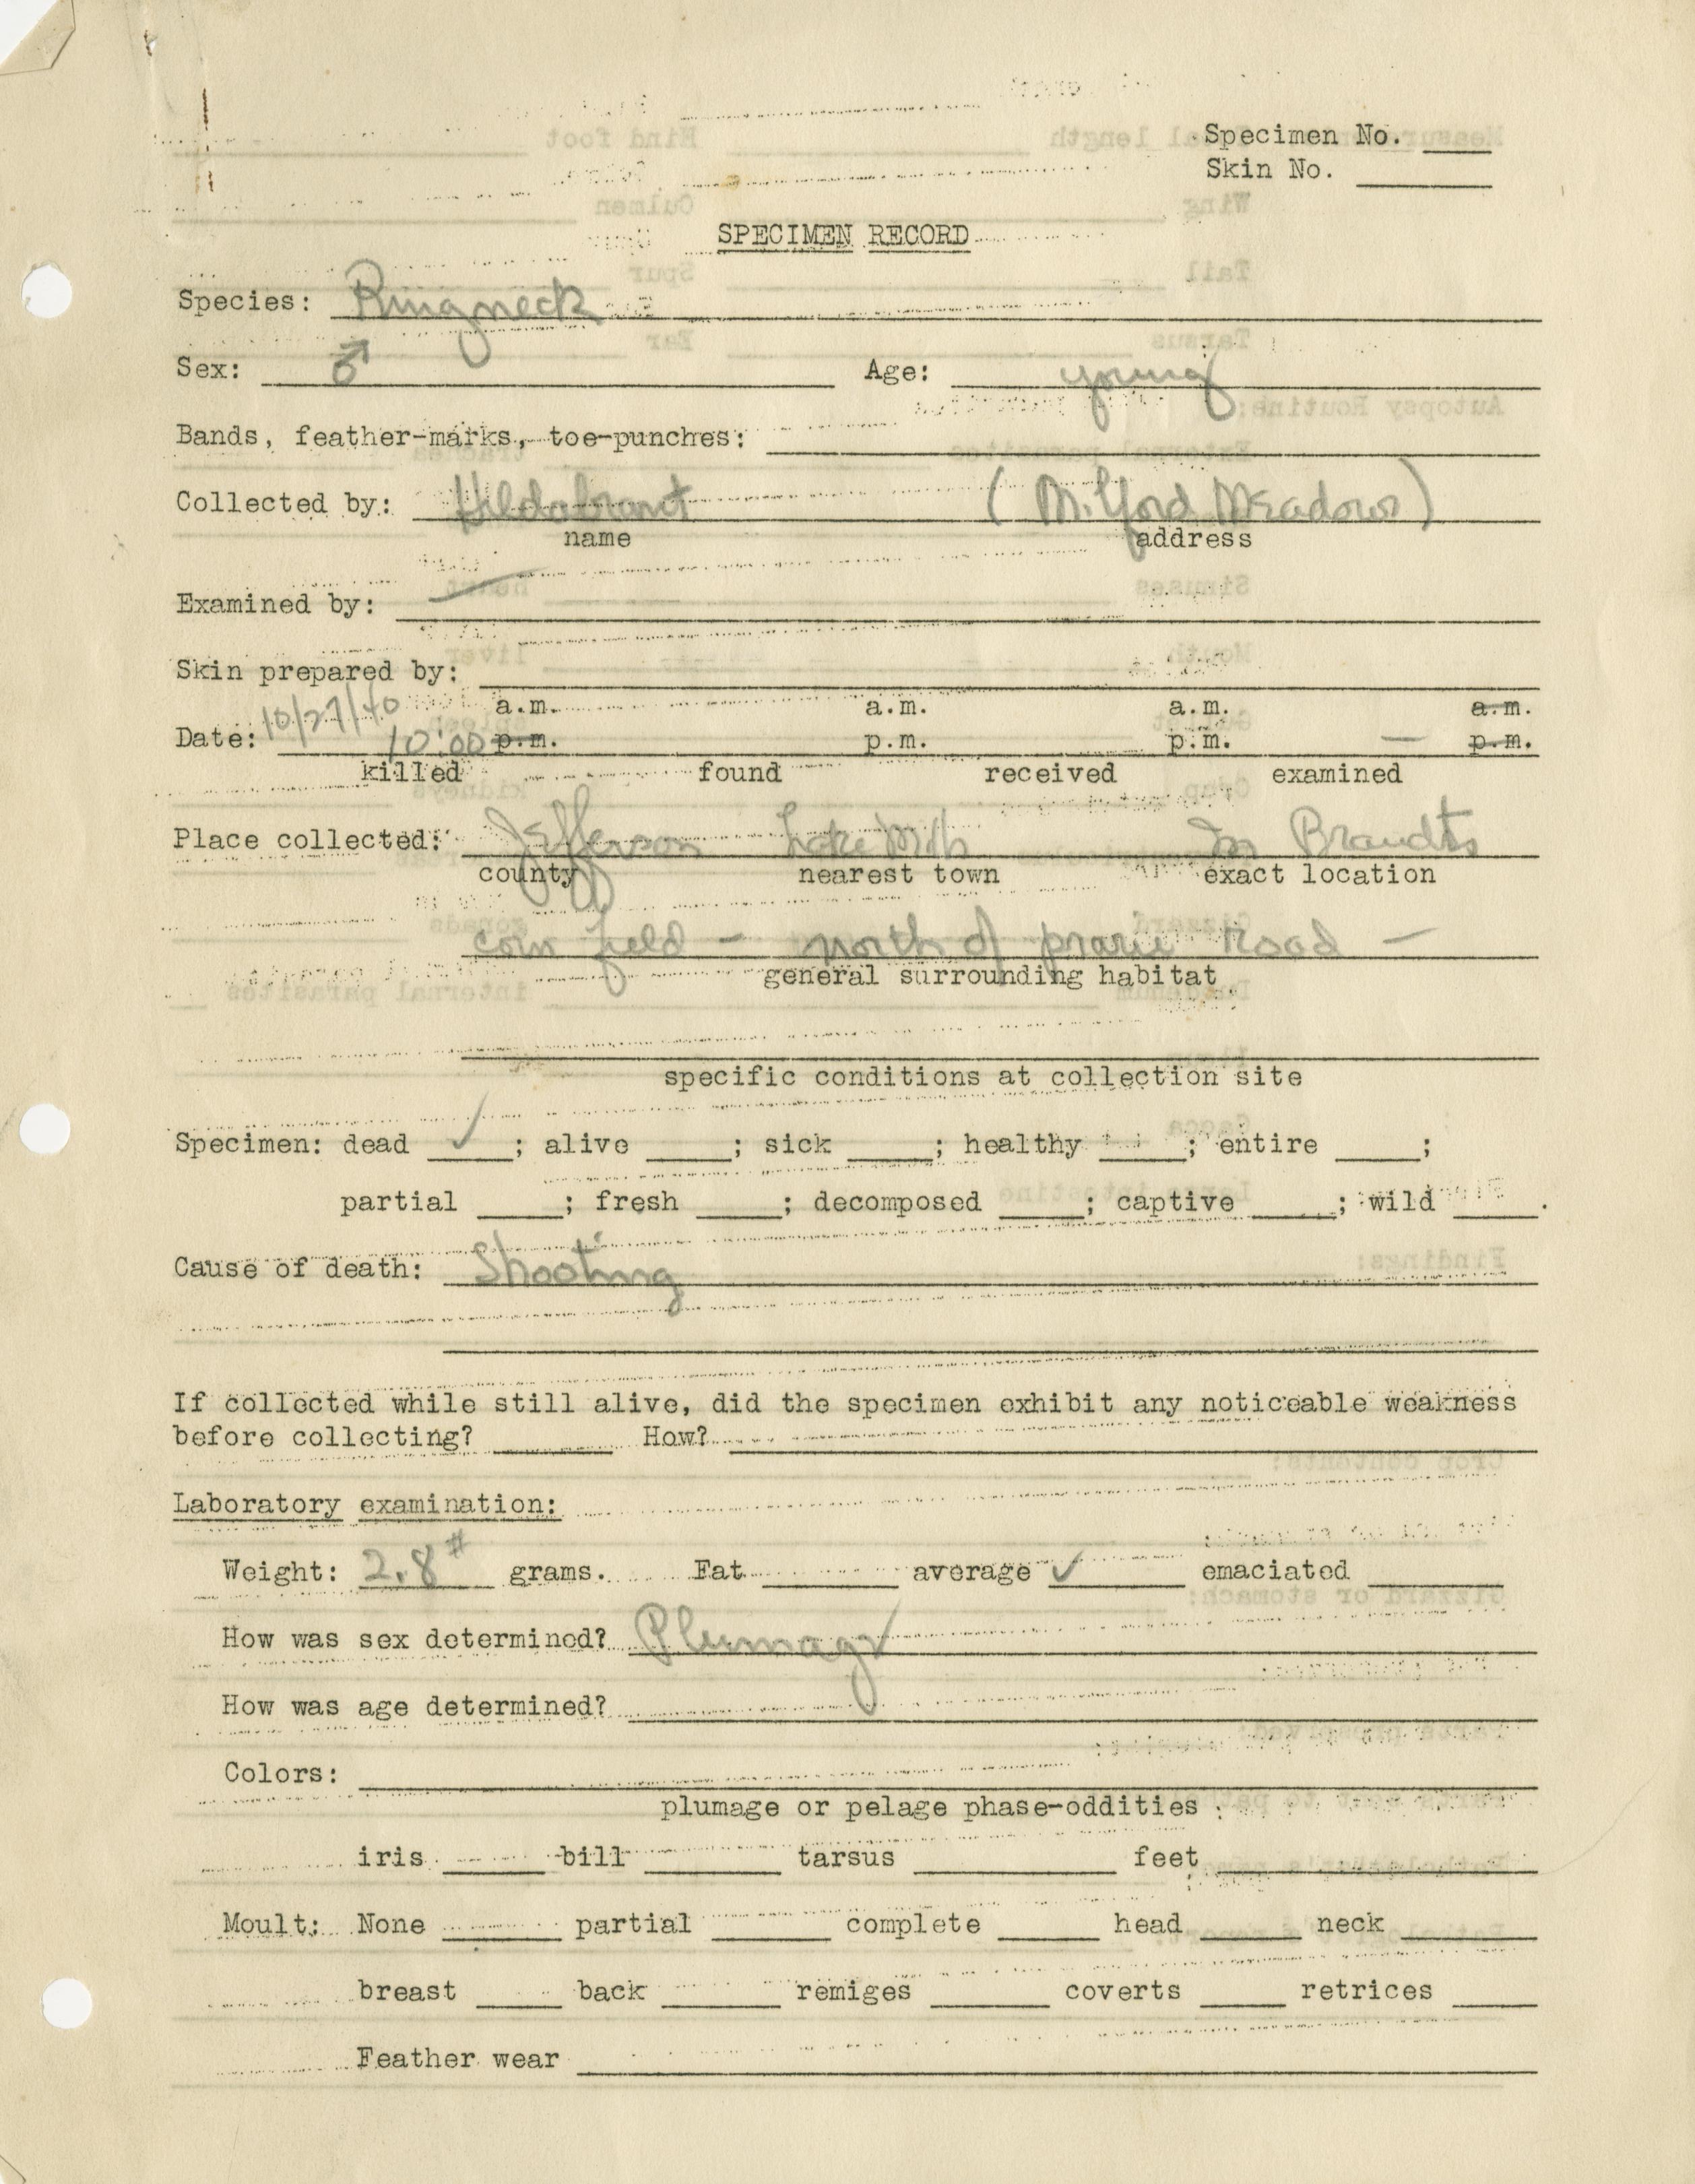 Specimen No. ____
Skin No. ____
SPECIMEN RECORD
Species: Ringneck
Sex: ♂ Age: young
Bands, feather-marks, toe-punches: ____
Collected by: Hildebrant (Milford Meadows)
name address
Examined by: —
Skin prepared by: ____
10/27/40 a.m. a.m. a.m. a.m.
Date: 10:00 p.m. p.m. p.m. — p.m.
killed found received examined
Place collected: Jefferson Lake Mills In Brandts
county nearest town exact location
corn field - north of prarie Road -
general surrounding habitat
specific conditions at collection site
Specimen: dead ✓; alive ____; sick ____; healthy ____; entire ____;
partial ____; fresh ____; decomposed ____; captive ____; wild ____.
Cause of death: Shooting
If collected while still alive, did the specimen exhibit any noticeable weakness
before collecting? ____ How? ____
Laboratory examination:
Weight: 2.8# grams. Fat ____ average ✓ emaciated ____
How was sex determined? Plumage
How was age determined? ____
Colors: ____
plumage or pelage phase-oddities
iris ____ bill ____ tarsus ____ feet ____
Moult: None ____ partial ____ complete ____ head ____ neck ____
breast ____ back ____ remiges ____ coverts ____ retrices ____
Feather wear ____